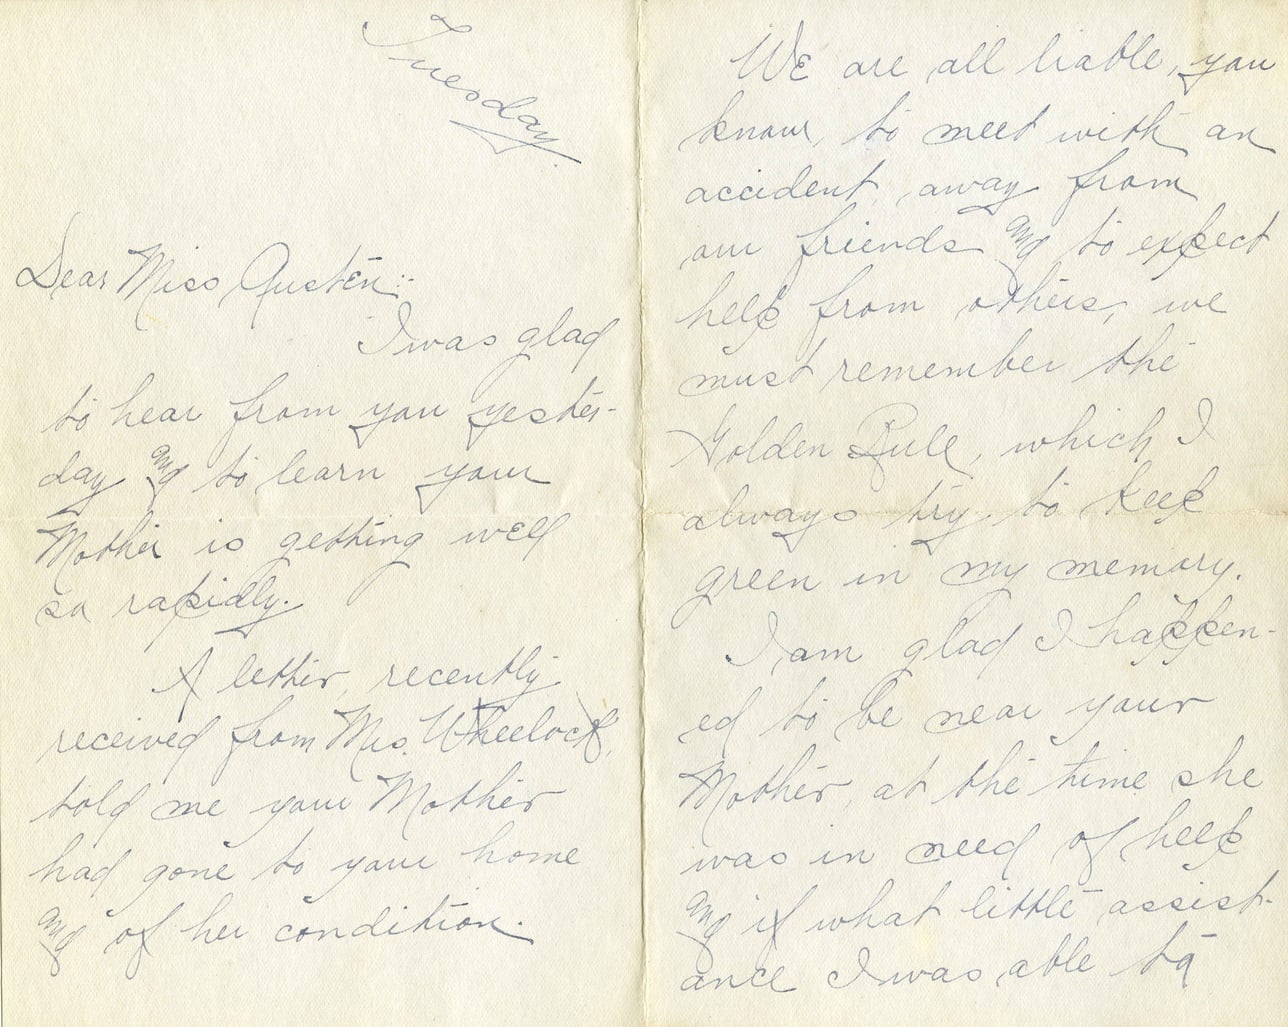 Tuesday.
Dear Miss Austen:-
I was glad
to hear from you yester-
day and to learn your
Mother is getting well
so rapidly.
A letter, recently
received from Mrs. Wheelock,
told me your Mother
had gone to your home
and of her condition.
We are all liable, you
know, to meet with an
accident, away from
our friends and to expect
help from others, we
must remember the
Golden Rule, which I
always try to keep
green in my memory.
I am glad I happen-
ed to be near your
Mother, at the time she
was in need of help
and if what little assist-
ance I was able to